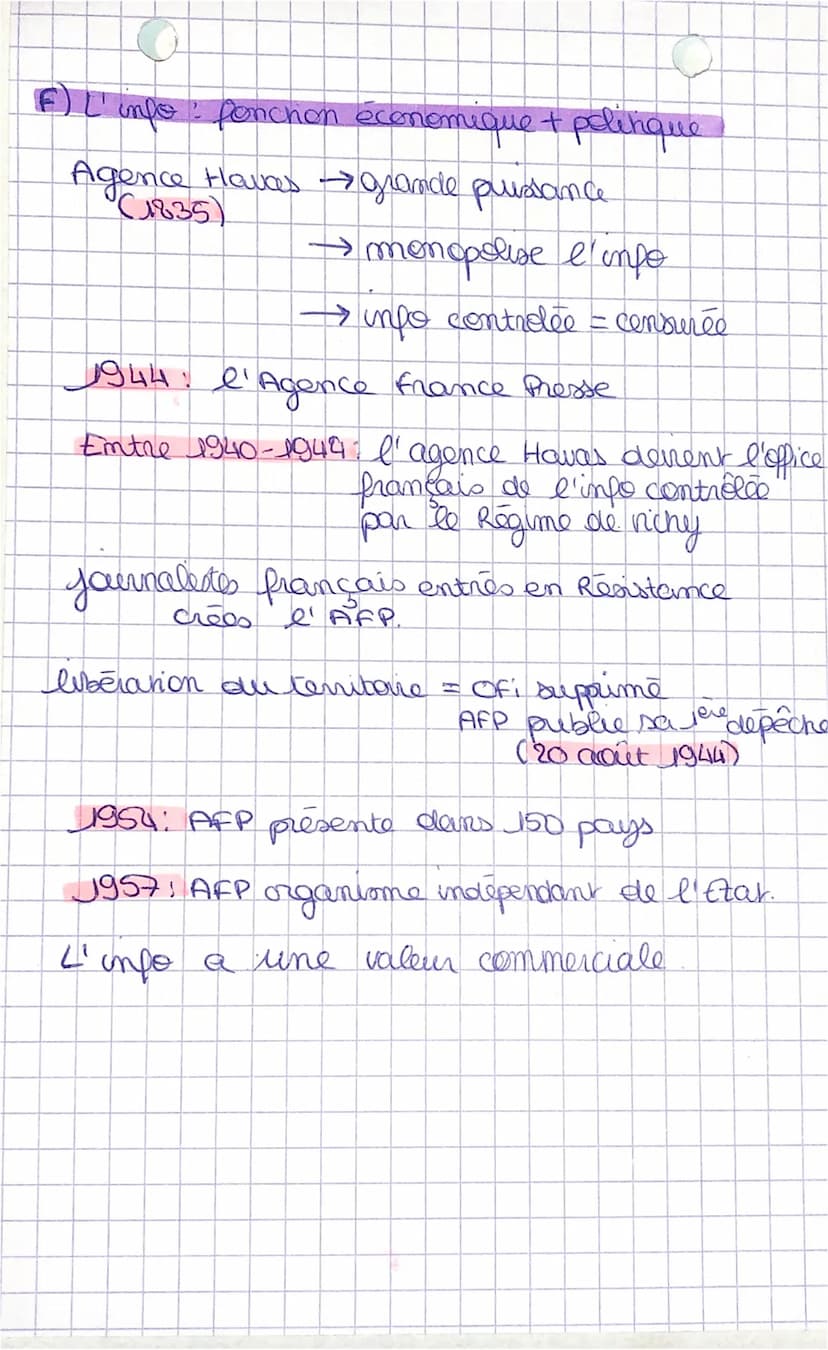 F) L'info : fonction économique + politique
Agence Havas → grande puissance
(1835)
→ monopolise l'info
→ info contrôlée = censurée
1944 : l'Agence France Presse
Entre 1940-1944 : l'agence Havas devient l'office
français de l'info contrôlée
par le Régime de Vichy
journalistes français entrés en Résistance
créés l'AFP.
libération du territoire = OFi supprimé
AFP publie sa 1ère dépêche
(20 août 1944)
1954 : AFP présente dans 150 pays
1957 : AFP organisme indépendant de l'Etat.
L'info a une valeur commerciale.